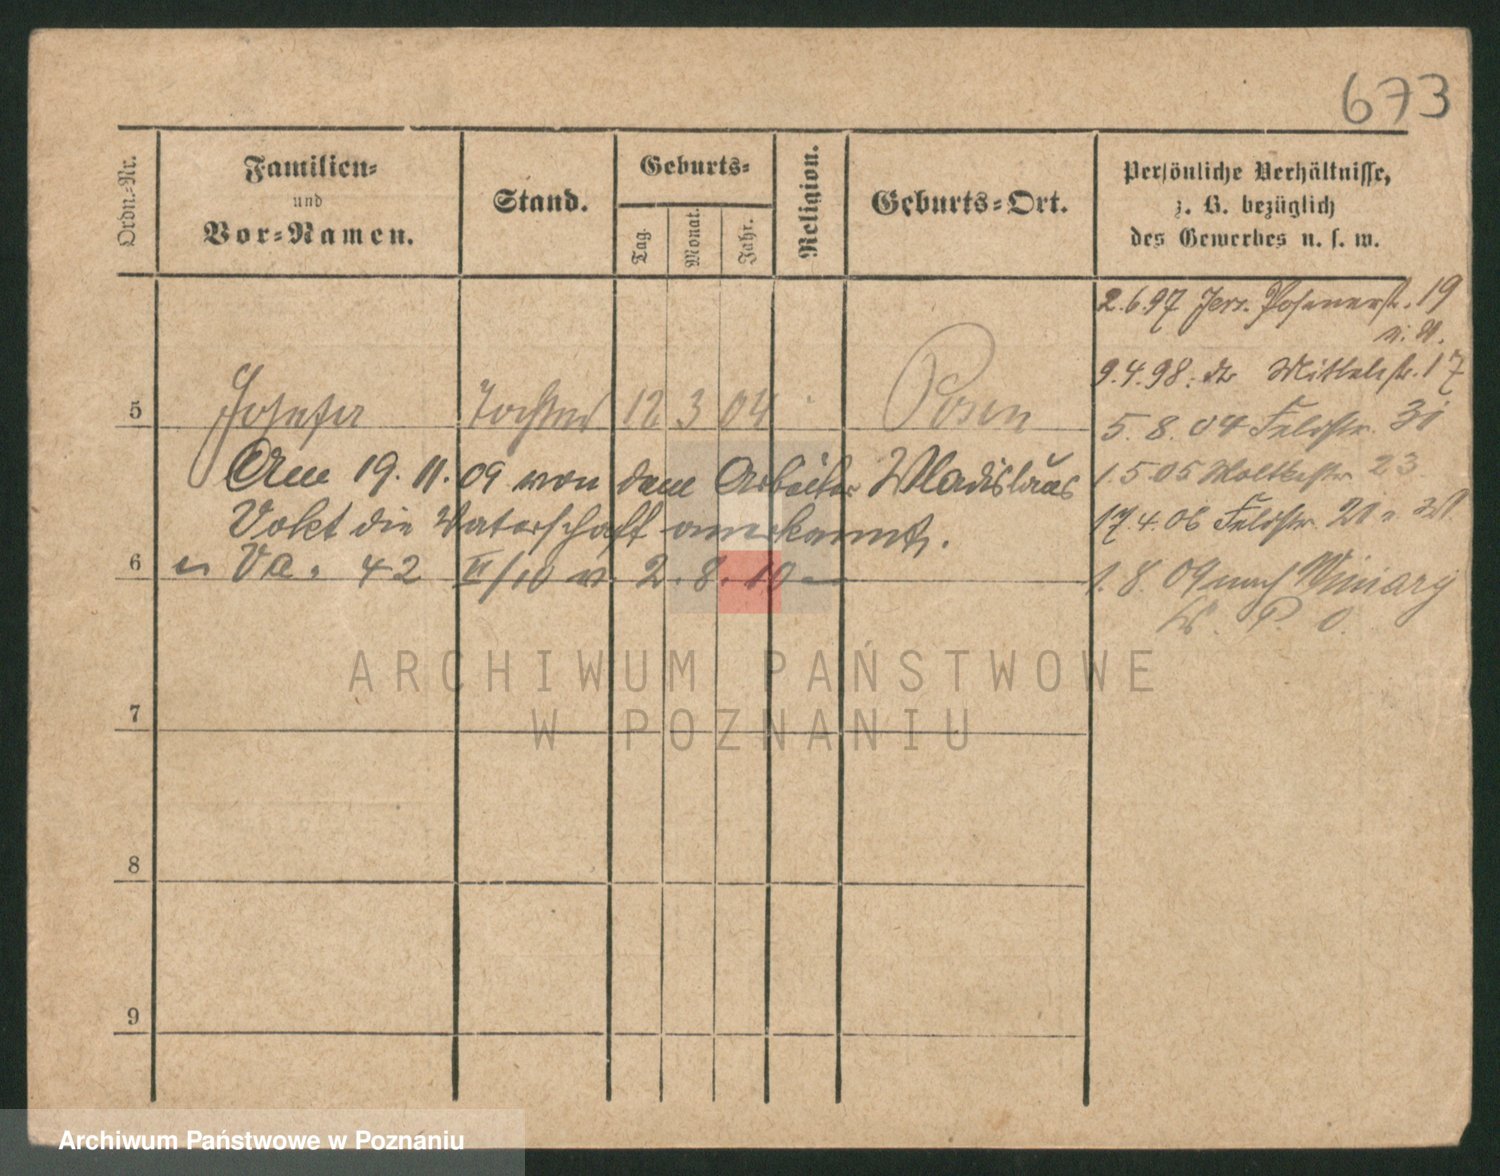 673
Ordn.-Nr.
Familien-
und
Vor-Namen.
Stand.
Geburts-
Tag.
Monat.
Jahr.
Religion.
Geburts-Ort.
Persönliche Verhältnisse,
z. B. bezüglich
des Gewerbes u. s. w.
2.6.97 Jers. Posenerstr. 19
9.4.98. Mittelstr. 17
5 Josefa Tochter 12 3 04 Posen
5. 8. 04 Feldstr. 31
Am 19. 11. 09 von dem Arbeiter Wladislaus
1.5.05 Moltkestr. 23
Vokt die Vaterschaft anerkannt.
17.4.06 Feldstr. 20
6 Va. 42 II/10 v. 2. 8. 10
1. 8. 09 nach Winiary
P. O.
ARCHIWUM PAŃSTWOWE
W POZNANIU
7
8
9
Archiwum Państwowe w Poznaniu